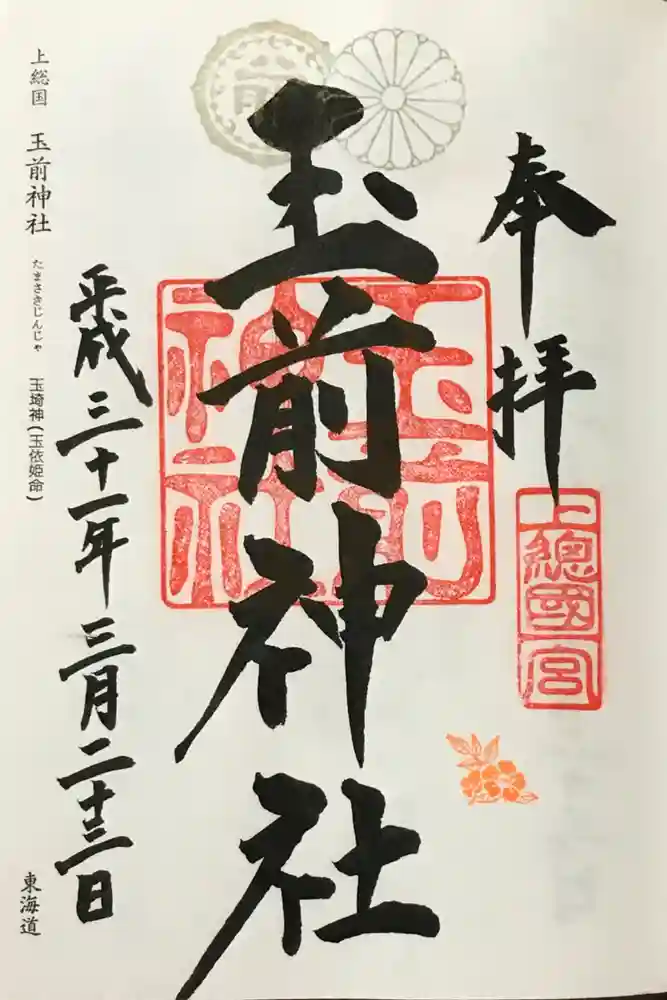 奉拝
上總國一宮
玉前神社
玉前神社
平成三十一年三月二十三日
上総国 玉前神社 たまさきじんじゃ 玉埼神(玉依姫命)
東海道